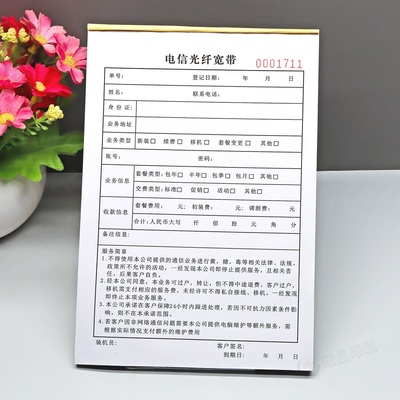 电信光纤宽带
0001711
单号： 登记日期： 年 月 日
姓名： 联系电话：
身份证：
业务地址：
业务类型 新装□ 续费□ 移机□ 套餐变更□ 其他□
账号： 密码：
业务信息 套餐类型：包年□ 半年□ 包季□ 包月□ 其他□
交费类型：标准□ 促销□ 活动□ 其他□
收款信息 套餐费用： 元；初装费： 元；调测费： 元
合计：人民币大写 仟 佰 拾 元 角 分
备注信息：
服务简章
1.不得使用本公司提供的通信业务进行黄、赌、毒等相关法律、法规、
政策所不允许的活动，一经发现本公司即终止提供服务，且相关责
任，后果客户自负。
2.经本公司同意，本业务可过户，转让，但不得中途退费，客户过户、
移机需支付相应的服务费，未经许可不得私自接线、移机，一经发现
即终止本项业务服务。
3.本公司承诺在客户保障24小时内跟进处理，若因不可抗力因素条件影
响，则不在本承诺范围。
4.若客户因非网络通信问题需要本公司提供电脑维护等额外服务，需
根据实际情况支付额外的维护费用
装机员： 客户签名：
到期日： 年 月 日